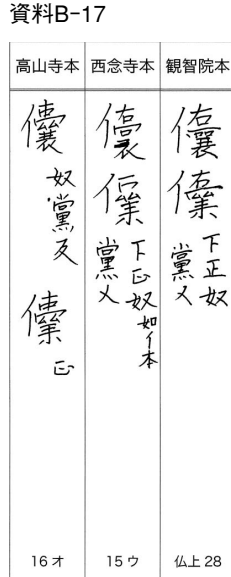 資料B-17
高山寺本
西念寺本
観智院本
奴黨反
正
下正奴如イ本
黨乂
下正奴
黨乂
16オ
15ウ
仏上28